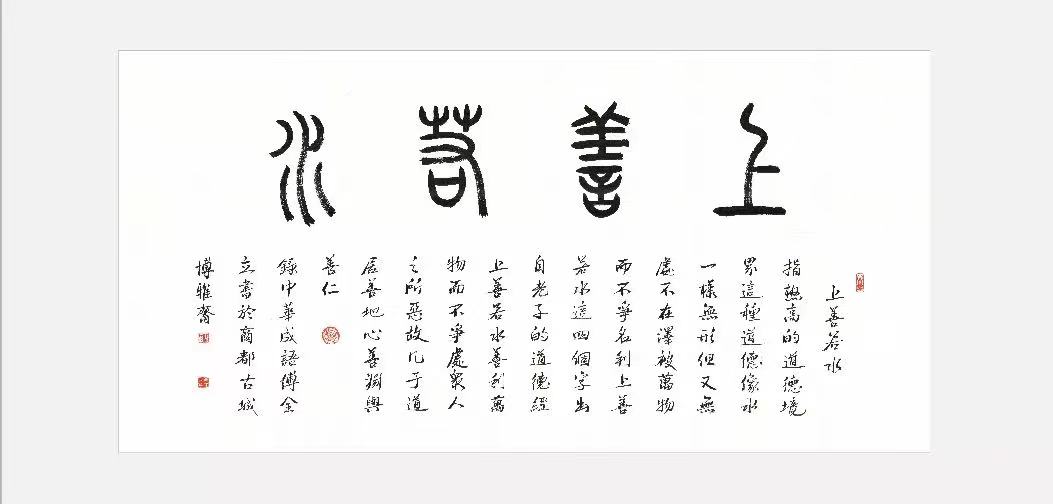 上善若水
上善若水
指熟高的道德境
界這種道德像水
一樣無形但又無
處不在澤被萬物
而不爭名利上善
若水這四個字出
自老子的道德經
上善若水善利萬
物而不爭處眾人
之所惡故几于道
居善地心善淵與
善仁
錄中華成語傅全
立書於商都古城
博雅齋